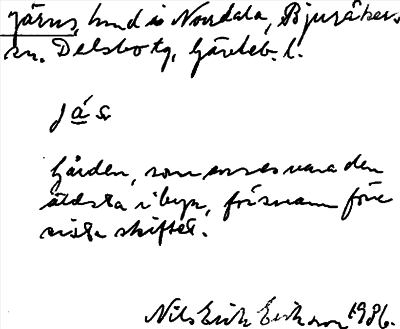 Järns, hmd i Norrdala, Bjuråkers
sn. Delsbo tg, Gävleb. l.
jás
Gården, som anses vara den
äldsta i byn, försvann före
sista skiftet.
Nils Erik Eriksson 1986.